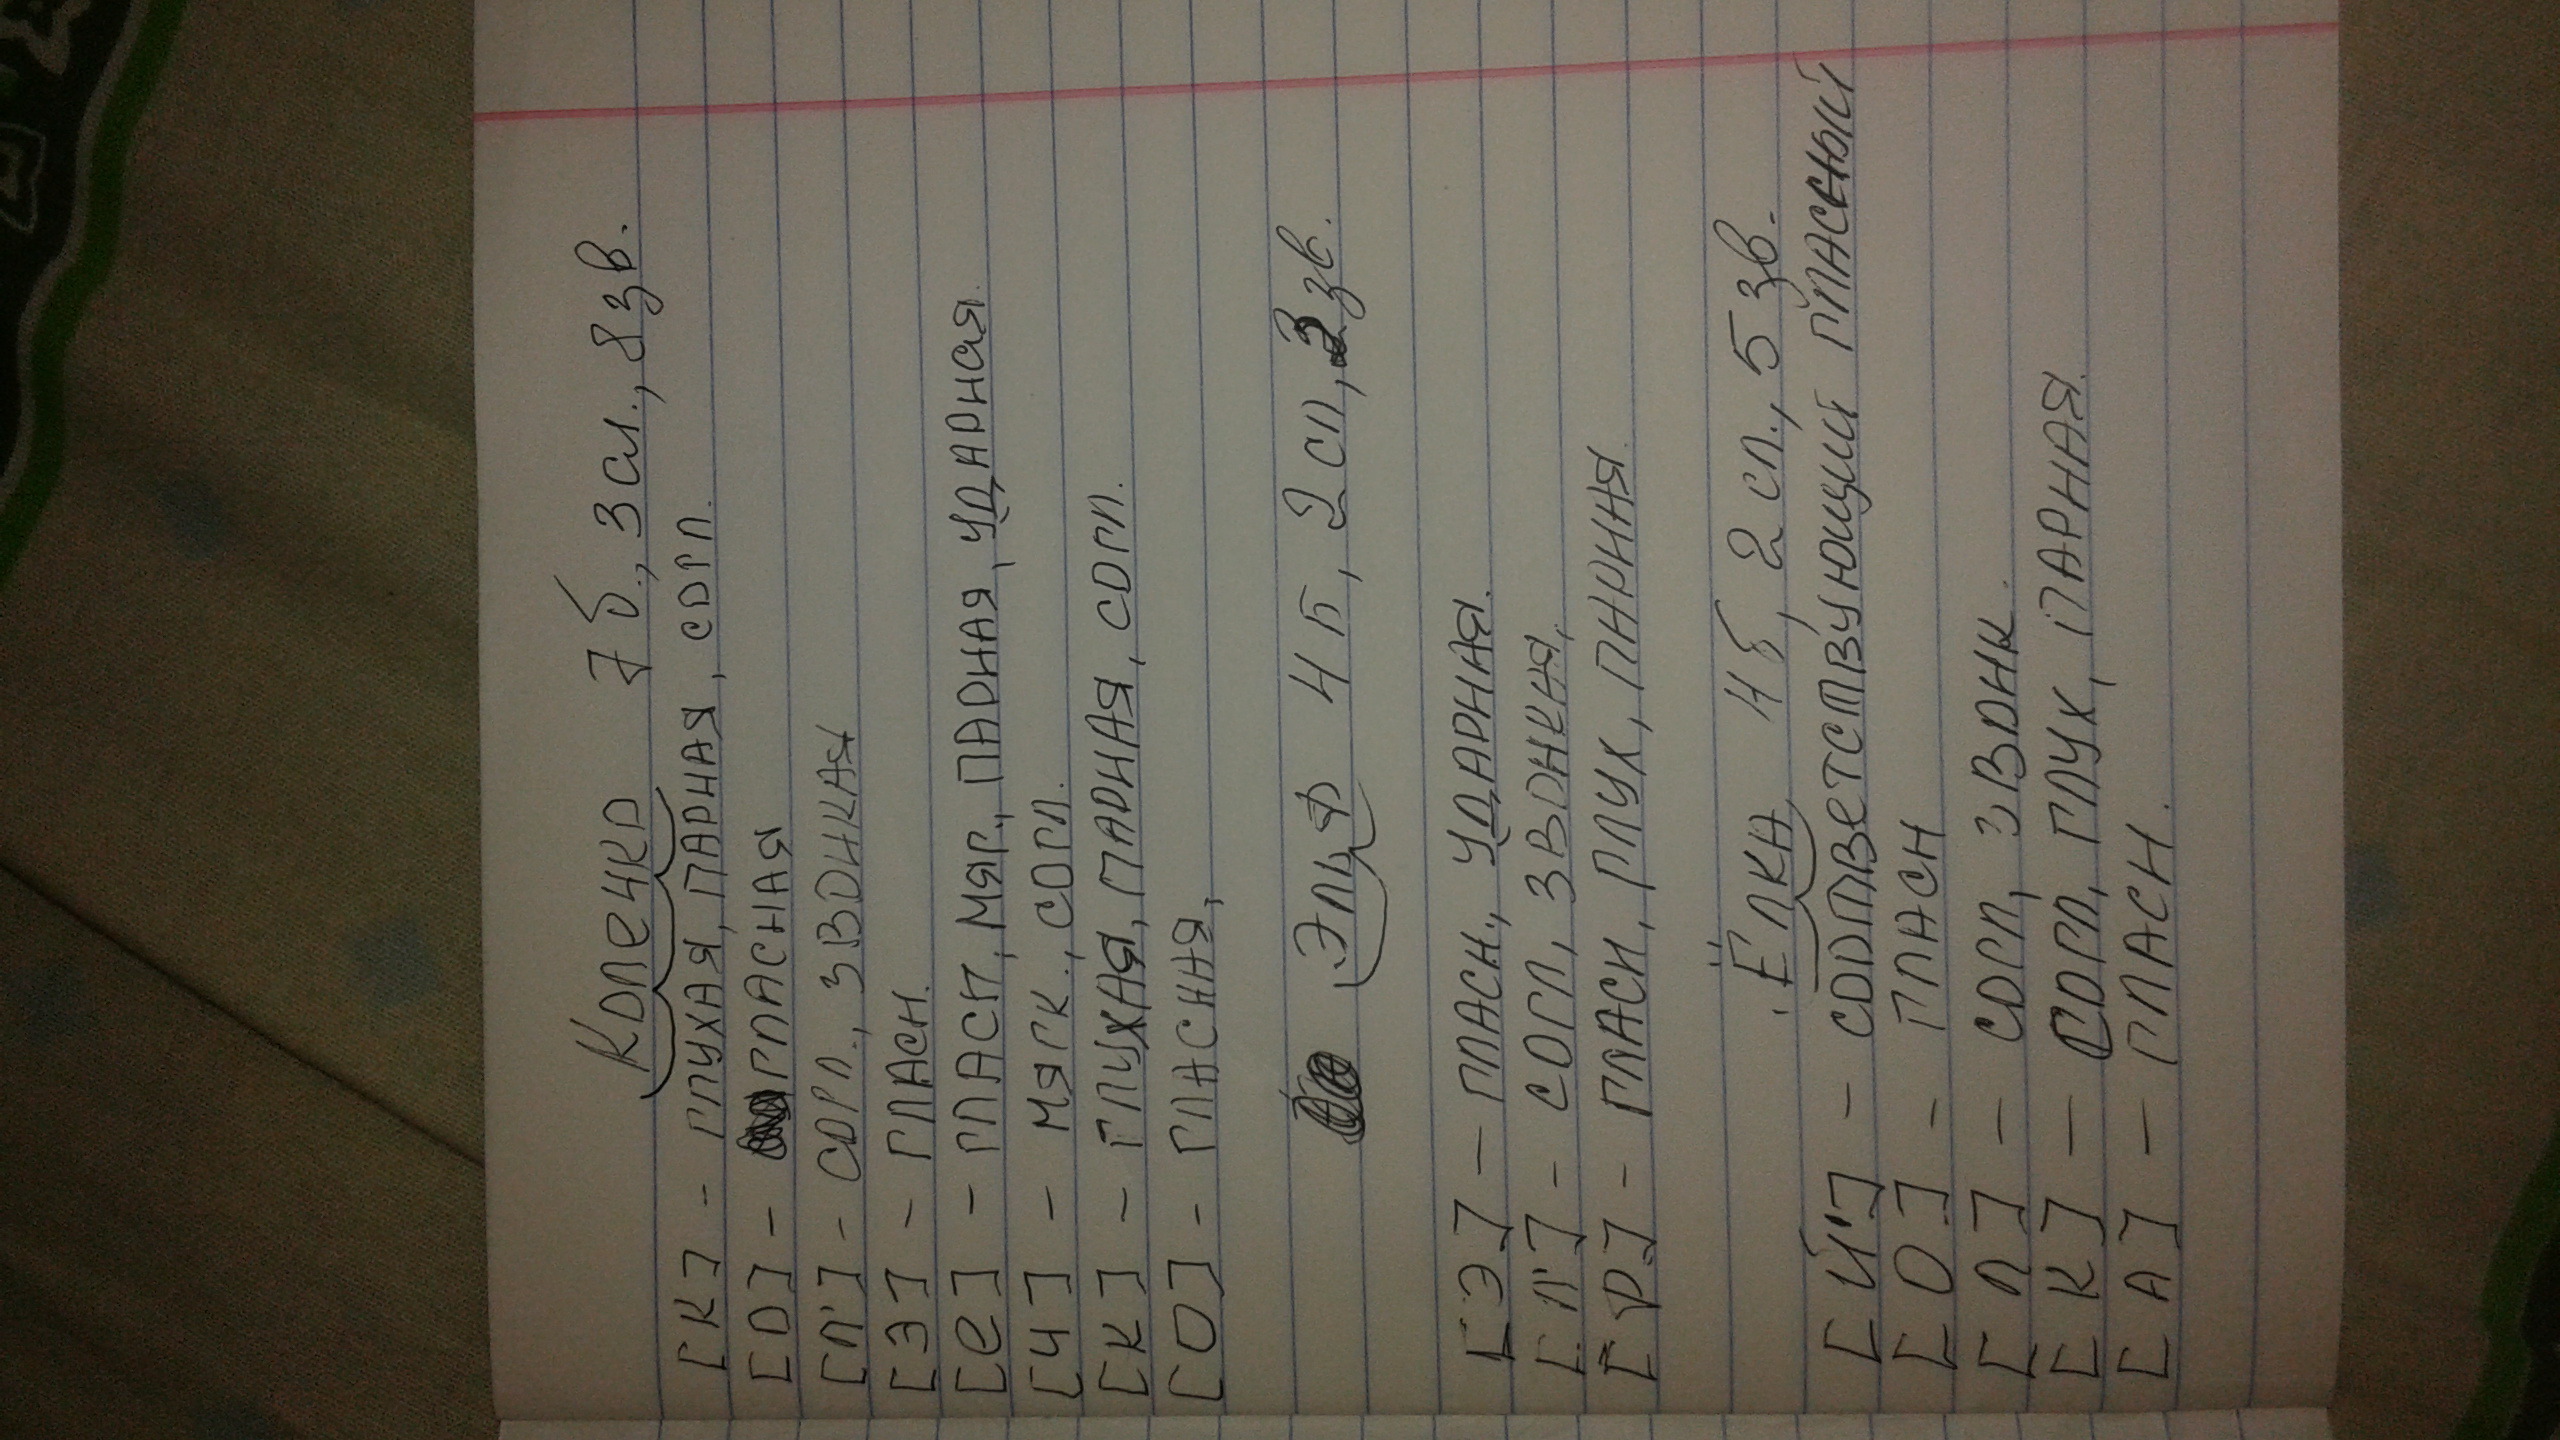 Колечко 7 б., 3 сл., 8 зв.
[К] - глухая, парная, согл.
[О] - гласная
[Л'] - согл., звонкая
[Э] - гласн.
[е] - гласн, мяг., парная, ударная.
[Ч] - мягк., согл.
[К] - глухая, парная, согл.
[О] - гласная,
Эльф 4 б, 2 сл, 3 зв.
[Э] - гласн., ударная.
[Л'] - согл, звонкая,
[Р] - гласн, глух, парная.
Ёлка 4 б, 2 сл., 5 зв.
[Й'] - соответствующий гласный
[О] - гласн
[Л] - согл, звонк.
[К] - согл, глух, парная.
[А] - гласн.